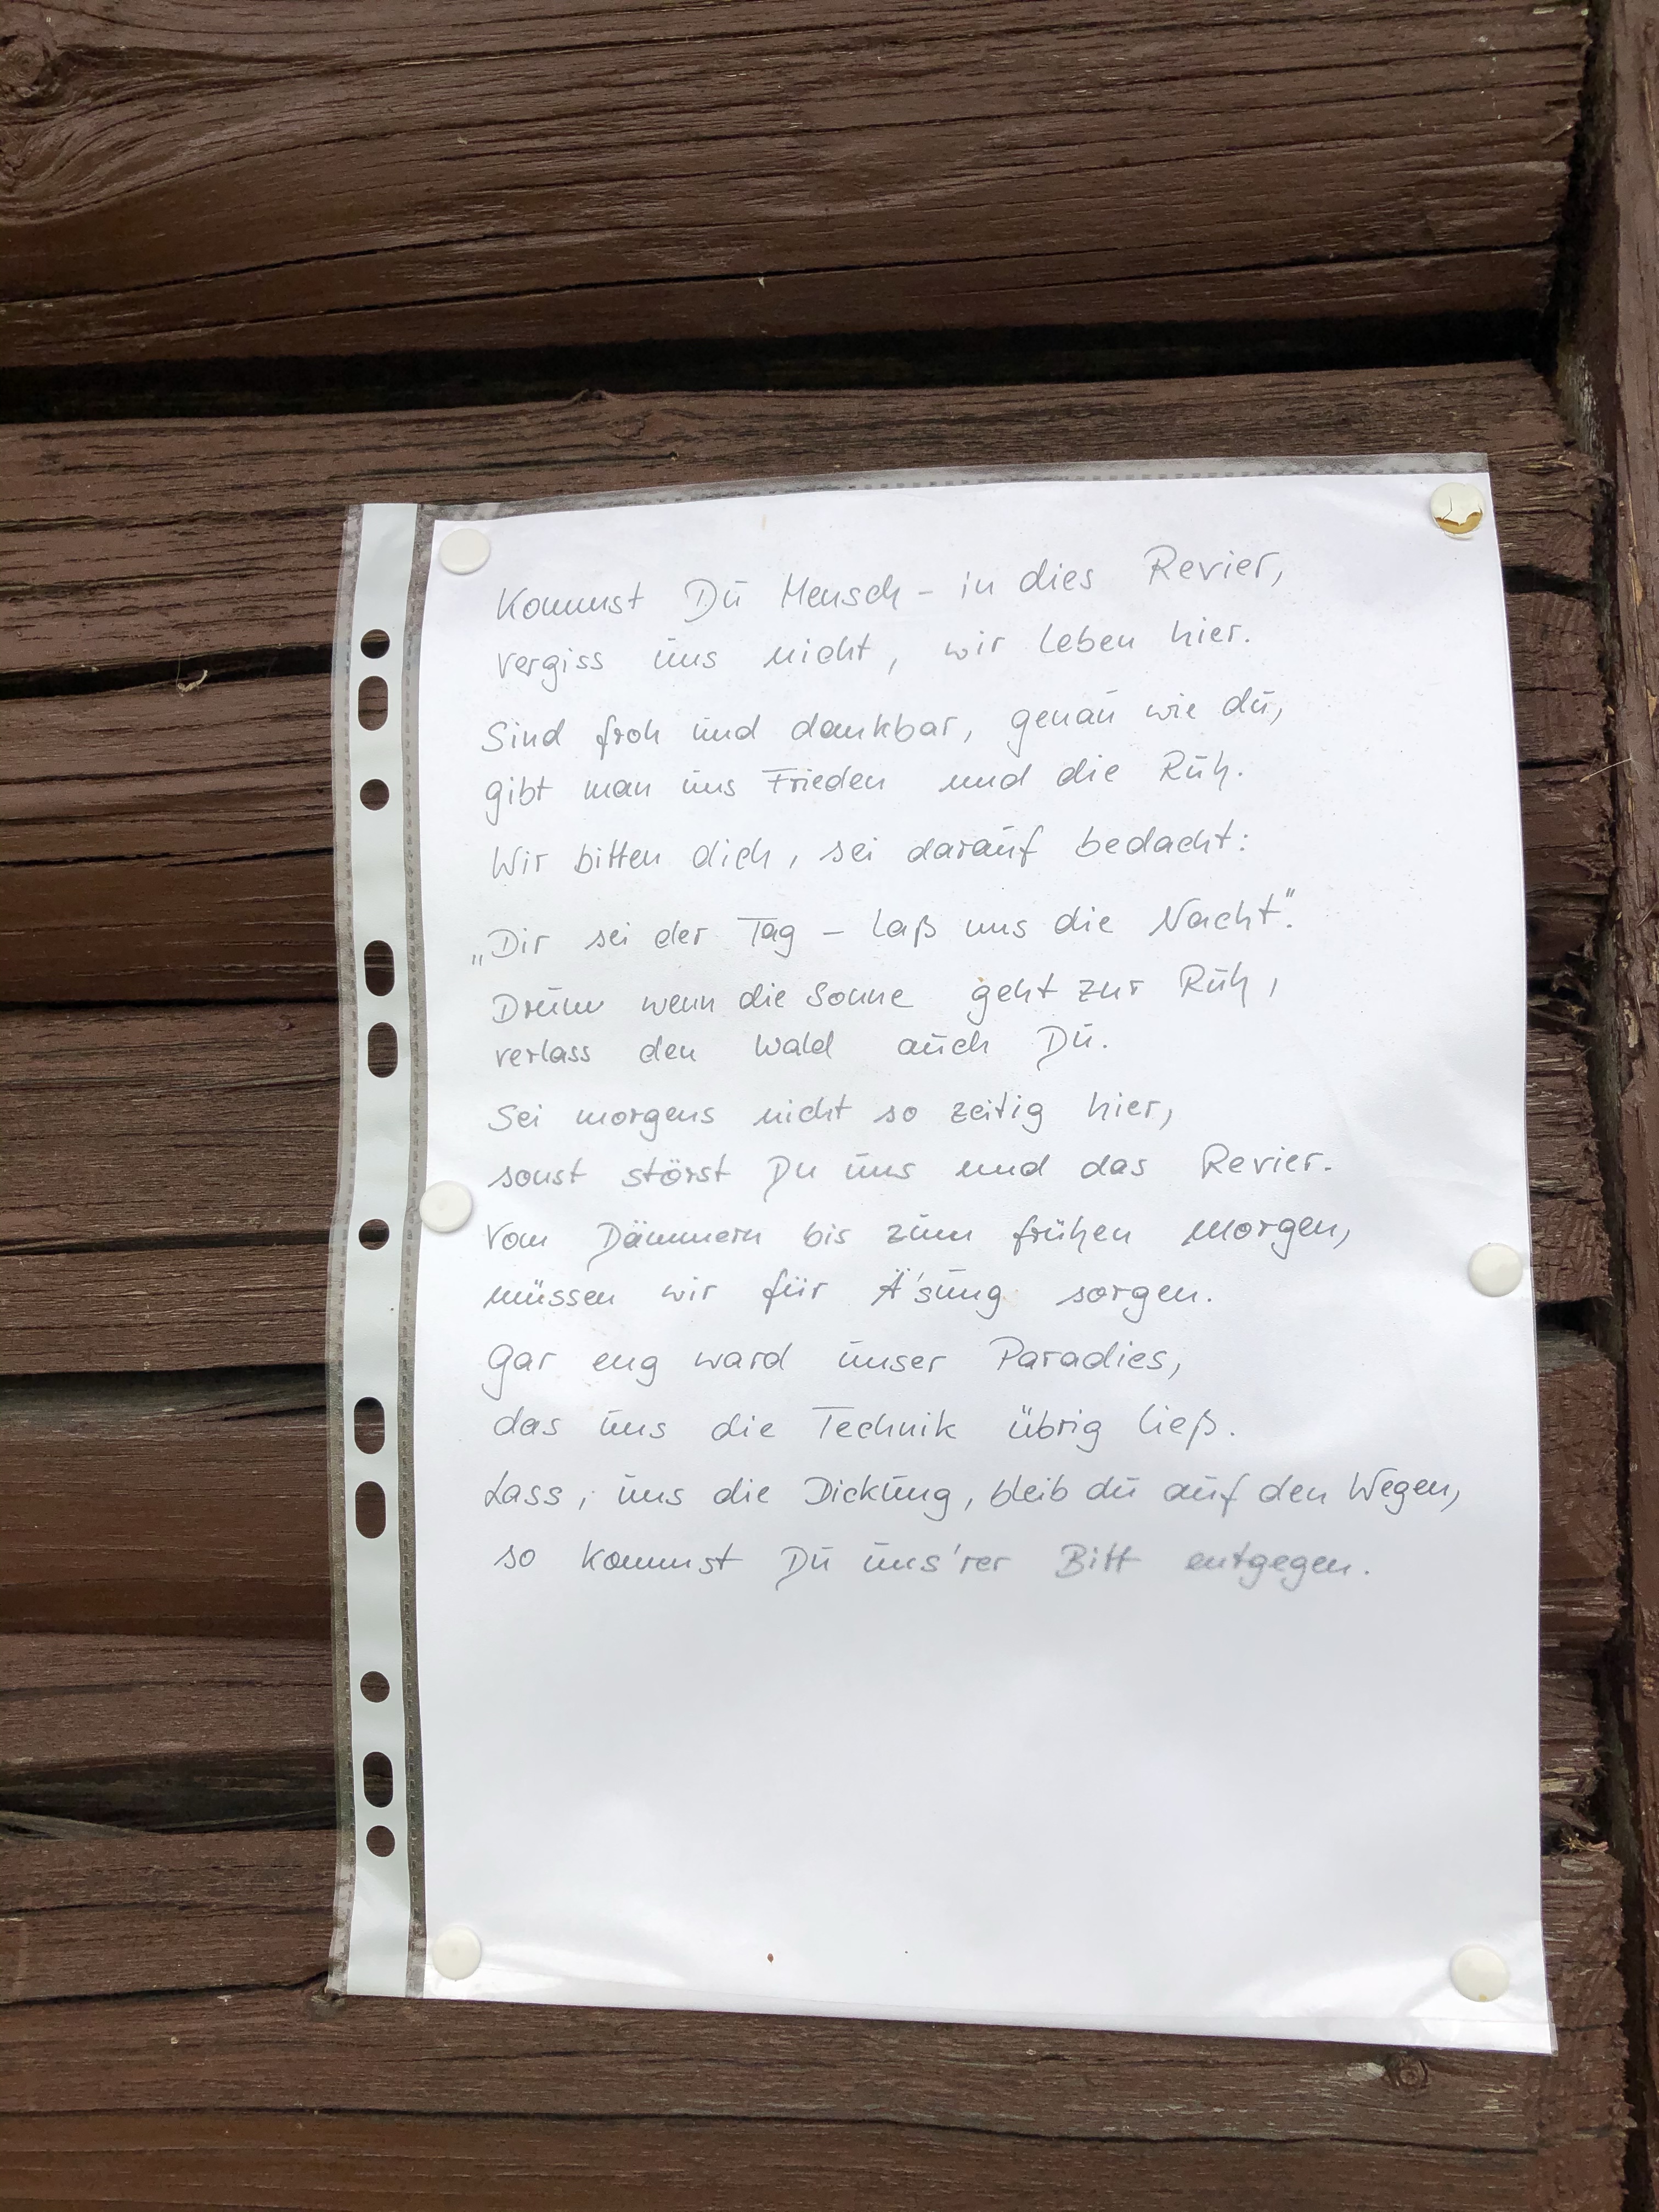 Kommst Du Mensch - in dies Revier,
vergiss uns nicht, wir leben hier.
Sind froh und dankbar, genau wie du,
gibt man uns Frieden und die Ruh.
Wir bitten dich, sei darauf bedacht:
„Dir sei der Tag - laß uns die Nacht".
Drum wenn die Sonne geht zur Ruh,
verlass den Wald auch Du.
Sei morgens nicht so zeitig hier,
sonst störst Du uns und das Revier.
Vom Dämmern bis zum frühen Morgen,
müssen wir für Ä'sung sorgen.
Gar eng ward unser Paradies,
das uns die Technik übrig ließ.
Lass, uns die Dickung, bleib du auf den Wegen,
so kommst Du uns'rer Bitt entgegen.